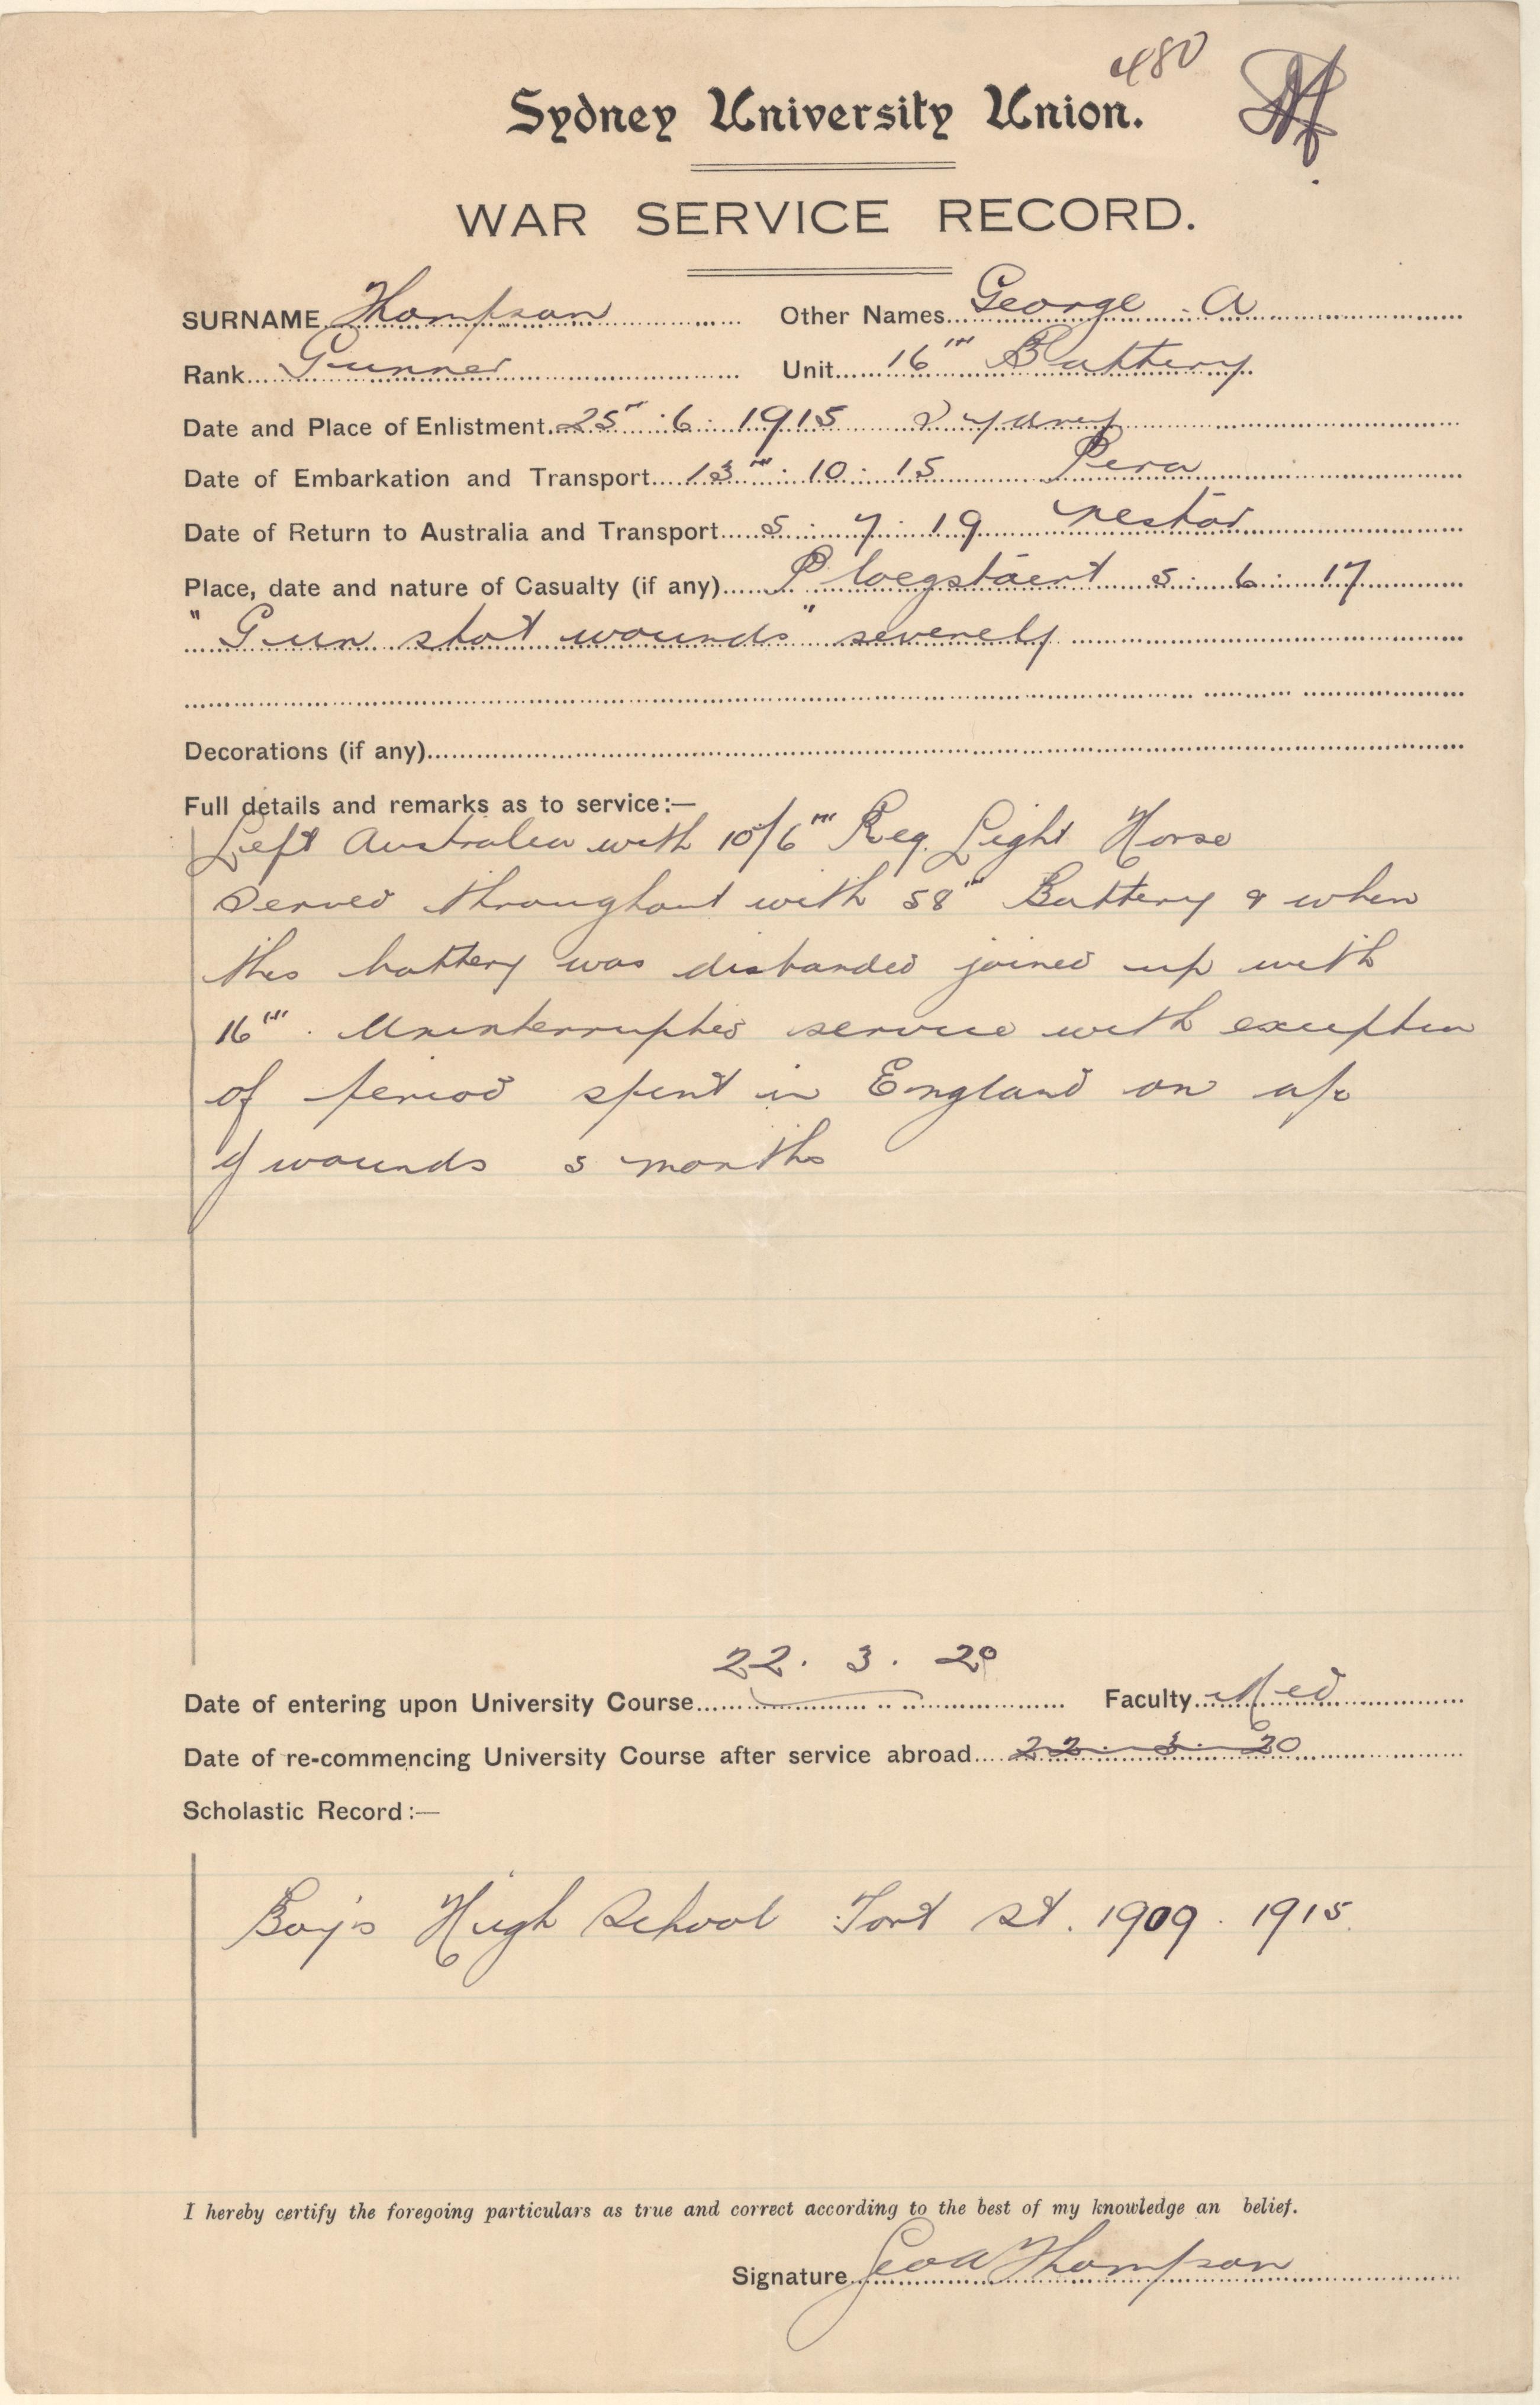 480
Sydney University Union.
WAR SERVICE RECORD.
SURNAME Thompson Other Names George A
Rank Gunner Unit 16th Battery
Date and Place of Enlistment 25th 6 1915 Sydney
Date of Embarkation and Transport 13th 10 15 Pera
Date of Return to Australia and Transport 5 7 19 Nestor
Place, date and nature of Casualty (if any) Ploegstaert 5 6 17
"Gun shot wounds" severely
Decorations (if any)
Full details and remarks as to service:—
Left Australia with 10/6th Reg. Light Horse
Served throughout with 58th Battery & when
this battery was disbanded joined up with
16th. Uninterrupted service with exception
of period spent in England on a/c
of wounds 5 months
22. 3. 20
Date of entering upon University Course Faculty Med
Date of re-commencing University Course after service abroad 22 3 20
Scholastic Record:—
Boy's High School Fort St. 1909. 1915.
I hereby certify the foregoing particulars as true and correct according to the best of my knowledge an belief.
Signature Geo A Thompson